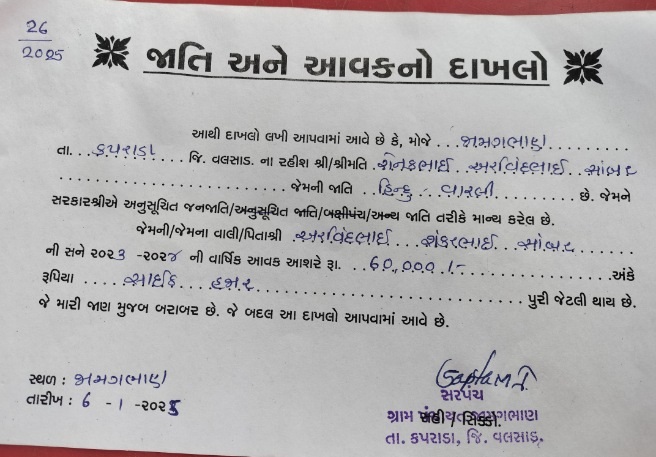 26
2025
જાતિ અને આવકનો દાખલો
આથી દાખલો લખી આપવામાં આવે છે કે, મોજે ...જામગભાણ.........
તા....કપરાડા.... જિ. વલસાડ. ના રહીશ શ્રી/શ્રીમતિ .રોનકભાઈ..અરવિંદભાઈ..સાંબર
............................ જેમની જાતિ ..હિન્દુ.-.વારલી............ છે. જેમને
સરકારશ્રીએ અનુસૂચિત જનજાતિ/અનુસૂચિત જાતિ/બક્ષીપંચ/અન્ય જાતિ તરીકે માન્ય કરેલ છે.
જેમની/જેમના વાલી/પિતાશ્રી .અરવિંદભાઈ...શંકરભાઈ...સાંબર....
ની સને ૨૦૨૩ -૨૦૨૪ ની વાર્ષિક આવક આશરે રૂા. ...60,000/-...................અંકે
રૂપિયા ....સાઈઠ....હજાર............................... પુરી જેટલી થાય છે.
જે મારી જાણ મુજબ બરાબર છે. જે બદલ આ દાખલો આપવામાં આવે છે.
સ્થળ : જામગભાણ
તારીખ : 6 - 1 -૨૦૨5
સરપંચ
સહી / સિક્કો.
ગ્રામ પંચાયત જામગભાણ
તા. કપરાડા, જિ. વલસાડ.